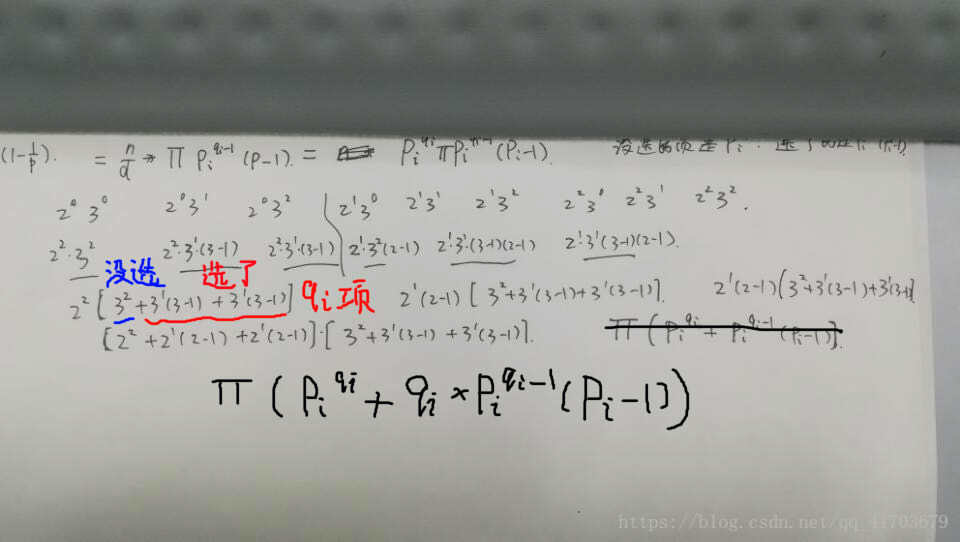 (1-1/p). = n/d * π p_i^{q_i-1} (p-1). = p_i^{q_i} π p_i^{q_i-1} (p_i-1). 没选的项是 p_i
2^0 3^0 2^0 3^1 2^0 3^2 2^1 3^0 2^1 3^1 2^1 3^2 2^2 3^0 2^2 3^1 2^2 3^2.
2^2·3^2 2^2·3^1·(3-1) 2^2·3^1·(3-1) 2^1·3^2(2-1) 2^1·3^1·(3-1)(2-1) 2^1·3^1(3-1)(2-1).
没选 选了
2^2[3^2+3^1(3-1)+3^1(3-1)] q_i项 2^1(2-1)[3^2+3^1(3-1)+3^1(3-1)]. 2^1(2-1)(3^2+3^1(3-1)+3^1(3-1)]
[2^2+2^1(2-1)+2^1(2-1)]·[3^2+3^1(3-1)+3^1(3-1)]. π(p_i^{q_i}+p_i^{q_i-1}(p_i-1)].
π(p_i^{q_i}+q_i×p_i^{q_i-1}(p_i-1))
https://blog.csdn.net/qq_41703679